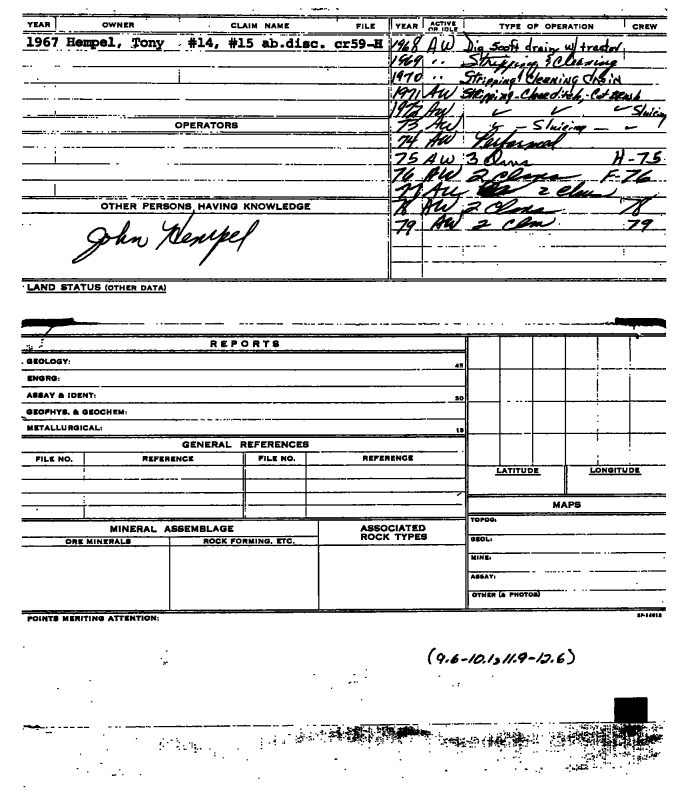 YEAR OWNER CLAIM NAME FILE YEAR ACTIVE OR IDLE TYPE OF OPERATION CREW
1967 Hempel, Tony #14, #15 ab.disc. cr59-H 1968 AW Dig 500ft drain w/ tractor
1969 " Stripping & Cleaning
1970 " Stripping & Cleaning drain
1971 AW Stripping - Clean ditch, - Cut Brush
1972 AW ✓ ✓ ✓ Sluicing
OPERATORS 73 AW ✓ - Sluicing - ✓
74 AW Performed
75 AW 3 H-75
76 AW 2 Claims F-76
77 AW 2 Clms
OTHER PERSONS HAVING KNOWLEDGE 78 AW 2 Claims 78
John Hempel 79 AW 2 Clm 79
LAND STATUS (OTHER DATA)
REPORTS
GEOLOGY: 45
ENGRG:
ASSAY & IDENT: 30
GEOPHYS. & GEOCHEM:
METALLURGICAL: 15
GENERAL REFERENCES
FILE NO. REFERENCE FILE NO. REFERENCE
LATITUDE LONGITUDE
MAPS
MINERAL ASSEMBLAGE ASSOCIATED ROCK TYPES TOPOG:
ORE MINERALS ROCK FORMING, ETC. GEOL:
MINE:
ASSAY:
OTHER (& PHOTOS)
POINTS MERITING ATTENTION:
(9.6-10.1, 11.9-12.6)